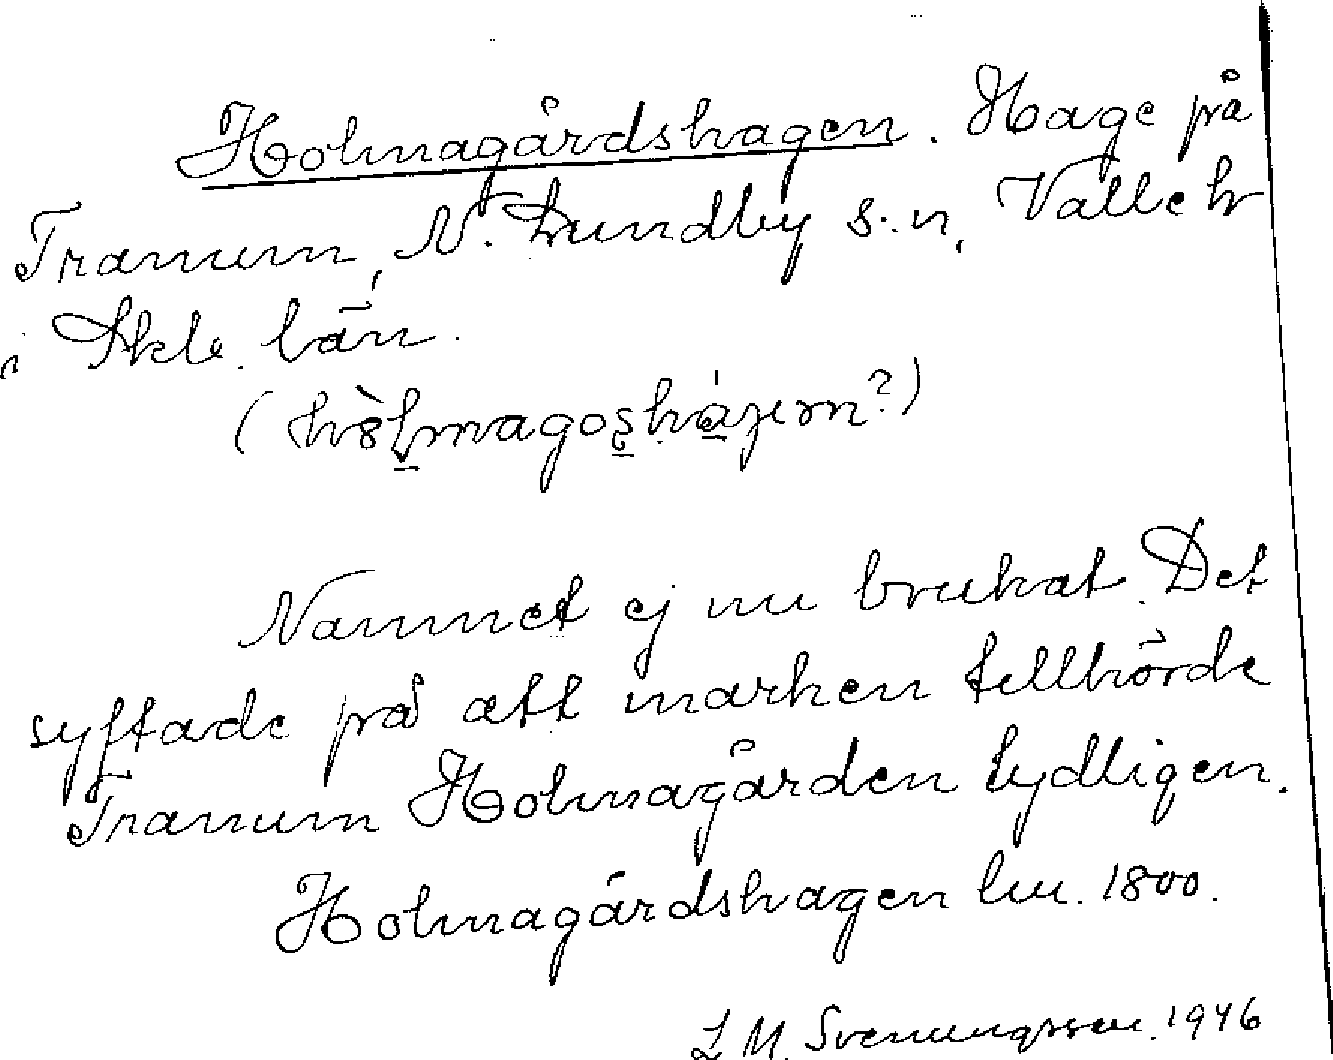 Holmagårdshagen. Hage på
Tranum, N. Lundby s:n, Valle h
i Skb. län.
Namnet ej nu brukat. Det
syftade på att marken tillhörde
Tranum Holmagården tydligen.
Holmagårdshagen lm. 1800.
L M. Svenungsson. 1946